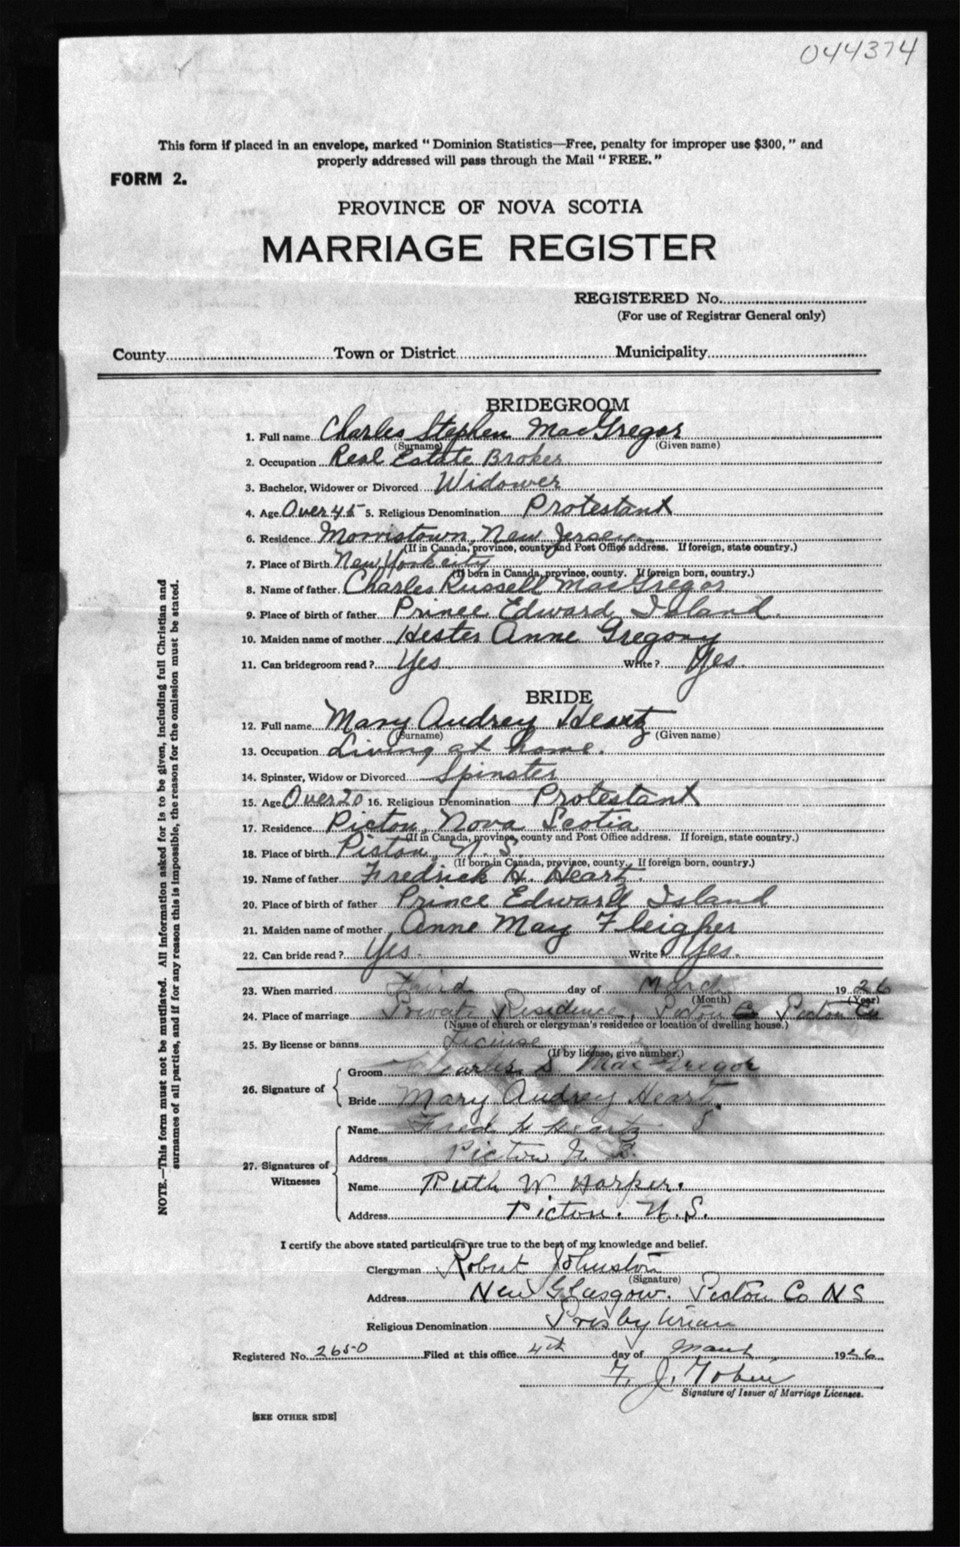 044374
This form if placed in an envelope, marked "Dominion Statistics—Free, penalty for improper use $300," and
properly addressed will pass through the Mail "FREE."
FORM 2.
PROVINCE OF NOVA SCOTIA
MARRIAGE REGISTER
REGISTERED No.
(For use of Registrar General only)
County Town or District Municipality
BRIDEGROOM
1. Full name Charles Stephen MacGregor
(Surname) (Given name)
2. Occupation Real Estate Broker
3. Bachelor, Widower or Divorced Widower
4. Age Over 45 5. Religious Denomination Protestant
6. Residence Morristown, New Jersey
(If in Canada, province, county and Post Office address. If foreign, state country.)
7. Place of Birth New York city
(If born in Canada, province, county. If foreign born, country.)
8. Name of father Charles Russell MacGregor
9. Place of birth of father Prince Edward Island
10. Maiden name of mother Hester Anne Gregory
11. Can bridegroom read? Yes Write? Yes.
BRIDE
12. Full name Mary Audrey Heartz
(Surname) (Given name)
13. Occupation Living at home.
14. Spinster, Widow or Divorced Spinster
15. Age Over 20 16. Religious Denomination Protestant
17. Residence Picton, Nova Scotia
(If in Canada, province, county and Post Office address. If foreign, state country.)
18. Place of birth Picton, N. S.
(If born in Canada, province, county. If foreign born, country.)
19. Name of father Fredrick H. Heartz
20. Place of birth of father Prince Edward Island
21. Maiden name of mother Anne May Fleigher
22. Can bride read? Yes. Write Yes.
23. When married Third day of March 1926
(Month) (Year)
24. Place of marriage Private Residence, Picton Co Picton Co
(Name of church or clergyman's residence or location of dwelling house.)
25. By license or banns License
(If by license, give number.)
26. Signature of
Groom Charles S. MacGregor
Bride Mary Audrey Heartz
27. Signatures of Witnesses
Name Fred H Heartz
Address Picton N. S.
Name Ruth W Harper.
Address Picton. N.S.
I certify the above stated particulars are true to the best of my knowledge and belief.
Clergyman Robert Johnston
(Signature)
Address New Glasgow. Picton Co NS
Religious Denomination Presbyterian
Registered No. 2650 Filed at this office 4th day of March 1926
F. J. Tobin
Signature of Issuer of Marriage Licenses.
[SEE OTHER SIDE]
NOTE.—This form must not be mutilated. All information asked for is to be given, including full Christian and
surnames of all parties, and if for any reason this is impossible, the reason for the omission must be stated.